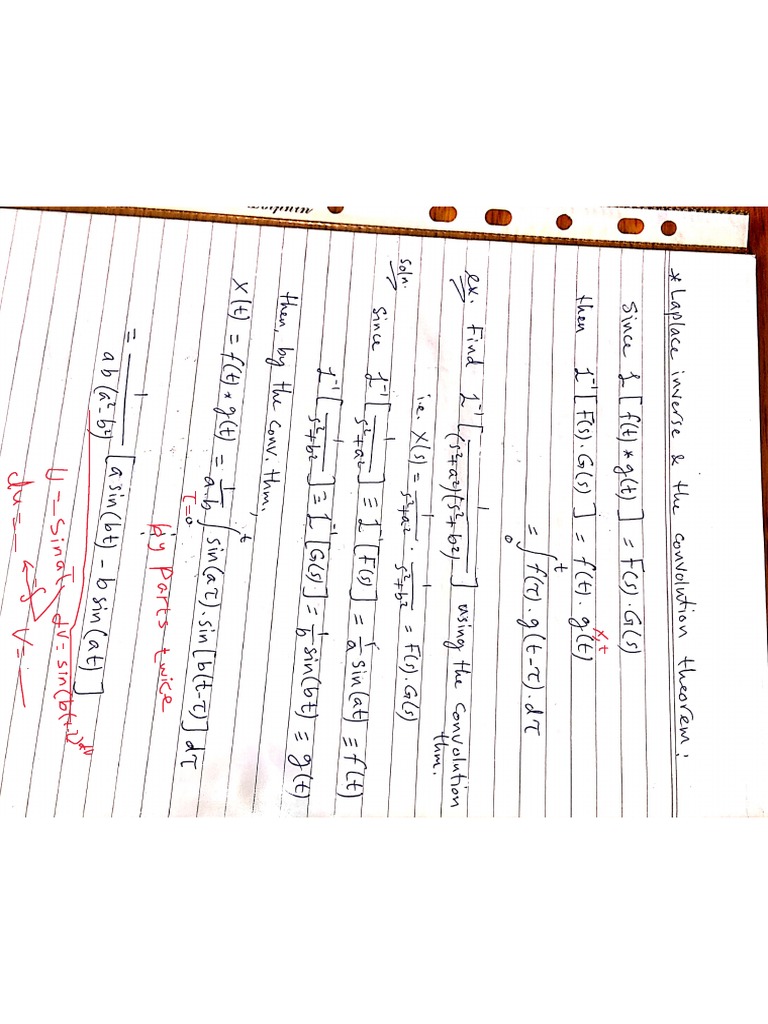 * Laplace inverse & the convolution theorem:
Since L[f(t) * g(t)] = F(s) . G(s)
then L⁻¹[F(s) . G(s)] = f(t) . g(t)
= ∫₀ᵗ f(τ) . g(t-τ) . dτ
ex. Find L⁻¹[1/((s²+a²)(s²+b²))] using the convolution
thm.
i.e. X(s) = 1/(s²+a²) . 1/(s²+b²) = F(s) . G(s)
soln.
Since L⁻¹[1/(s²+a²)] ≡ L⁻¹[F(s)] = 1/a sin(at) ≡ f(t)
L⁻¹[1/(s²+b²)] ≡ L⁻¹[G(s)] = 1/b sin(bt) ≡ g(t)
then, by the conv. thm,
X(t) = f(t) * g(t) = 1/(a.b) ∫_{τ=0}^{t} sin(aτ) . sin[b(t-τ)] dτ
by Parts twice
= 1/(ab(a²-b²)) [a sin(bt) - b sin(at)]
u = sin aτ dv = sin(b(t-τ)) dτ
du = — ∫ v = —